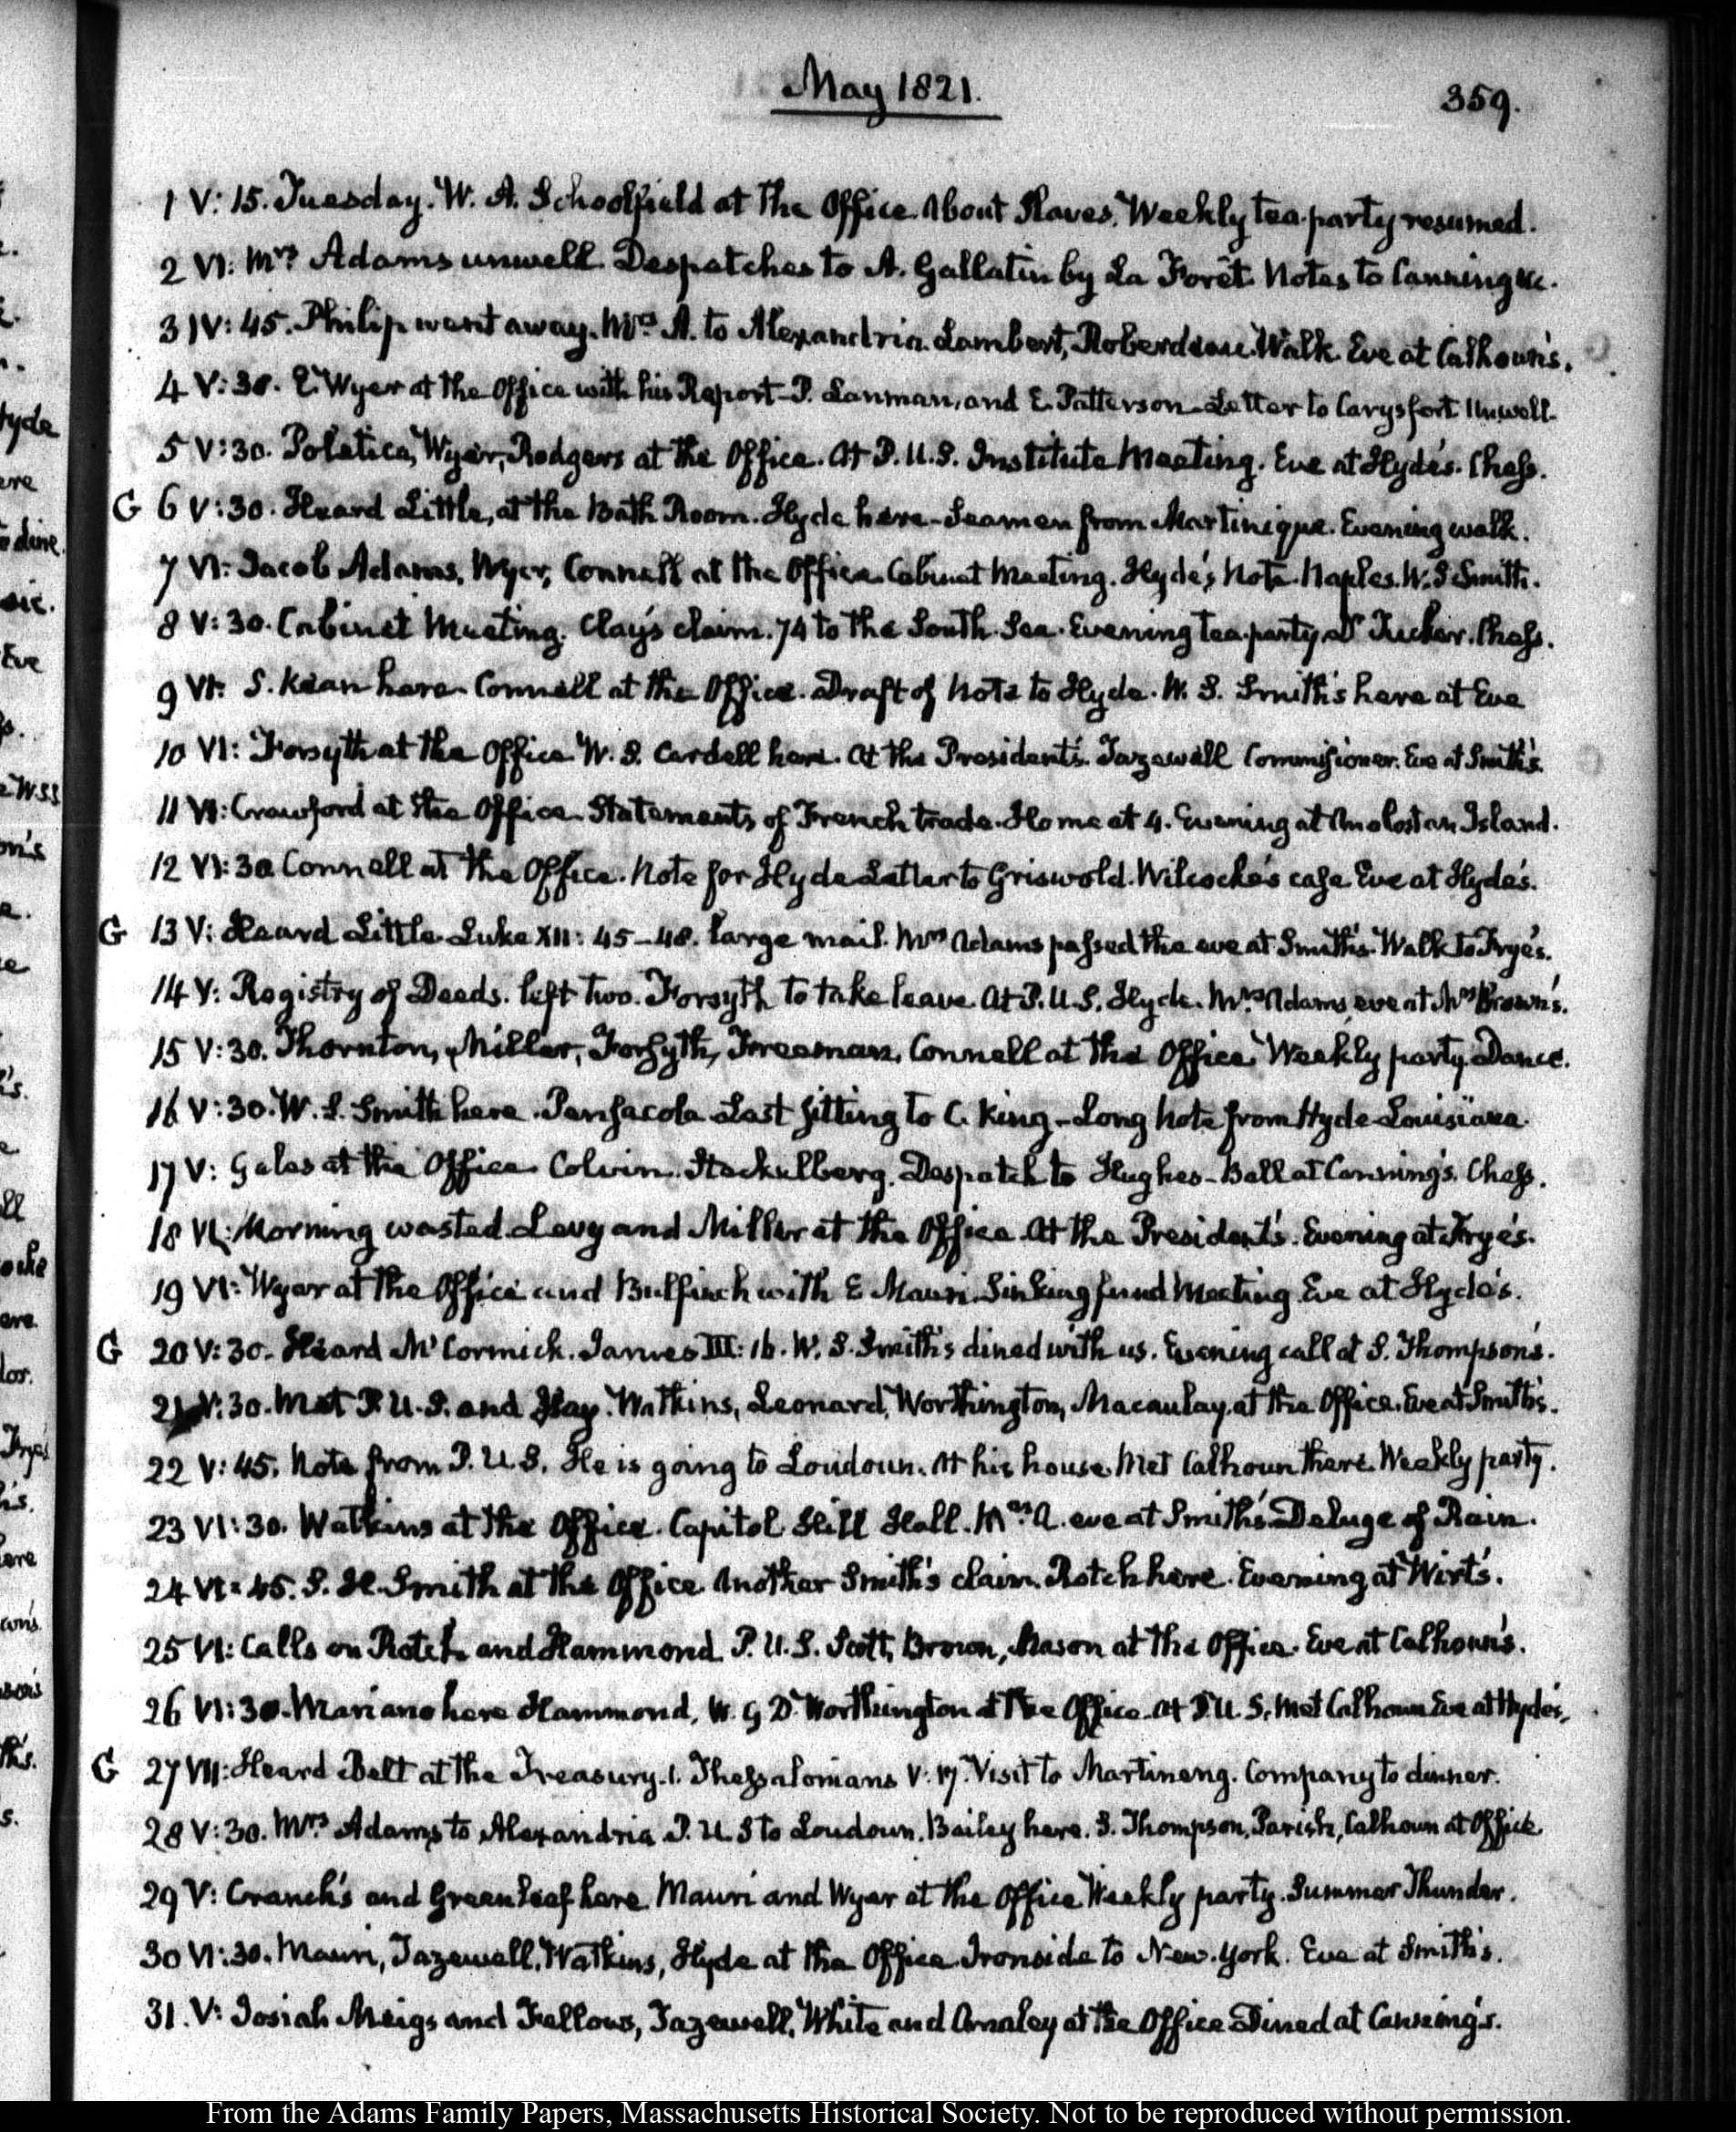 May 1821.
359.
1 V: 15. Tuesday. W. A. Schoolfield at the Office. About Slaves. Weekly tea party resumed.
2 VI: Mrs. Adams unwell. Despatches to A. Gallatin by La Forêt. Notes to Canning &c.
3 IV: 45. Philip went away. Mrs. A. to Alexandria. Lambert, Roberdeau. Walk. Eve at Calhoun's.
4 V: 30. E. Wyer at the Office with his Report – P. Lanman, and E. Patterson – Letter to Carysfort Unwell.
5 V: 30. Poletica, Wyer, Rodgers at the Office. At P. U. S. Institute Meeting. Eve at Hyde's. Chess.
G 6 V: 30. Heard Little, at the Bath Room. Hyde here – Seamen from Martinique. Evening walk.
7 VI: Jacob Adams, Wyer, Connell at the Office. Cabinet Meeting. Hyde's Note. Naples. W. S Smith.
8 V: 30. Cabinet Meeting. Clay's claim. 74 to the South Sea. Evening tea party. Dr Tucker. Chess.
9 VI: S. Kean here – Connell at the Office. Draft of Note to Hyde. W. S. Smith's here at Eve
10 VI: Forsyth at the Office W. S. Cardell here. At the President's. Tazewell Commissioner. Eve at Smith's.
11 VI: Crawford at the Office. Statements of French trade. Home at 4. Evening at Analostan Island.
12 VI: 30 Connell at the Office. Note for Hyde Letter to Griswold. Wilcocks's case Eve at Hyde's.
G 13 V: Heard Little. Luke XII: 45–48. large mail. Mrs Adams passed the eve at Smith's. Walk to Frye's.
14 V: Registry of Deeds. left two. Forsyth to take leave. At P. U. S. Hyde. Mrs. Adams, eve at Mrs Brown's.
15 V: 30. Thornton, Miller, Forsyth, Freeman, Connell at the Office Weekly party. Dance.
16 V: 30. W. S. Smith here. Pensacola. Last sitting to C. King – Long note from Hyde – Louisiana.
17 V: Gales at the Office. Colvin. Stackelberg. Despatch to Hughes – Ball at Canning's. Chess.
18 VI: Morning wasted. Levy and Miller at the Office. At the President's. Evening at Frye's.
19 VI: Wyer at the Office and Bulfinch with E Mauri. Sinking fund Meeting. Eve at Hyde's.
G 20 V: 30. Heard McCormick. James III: 16. W. S. Smith's dined with us. Evening call at S. Thompson's.
21 V: 30. Met P. U. S. and Hay. Watkins, Leonard, Worthington, Macaulay, at the Office. Eve at Smith's.
22 V: 45. Note from P. U. S. He is going to Loudoun. At his house. Met Calhoun there. Weekly party.
23 VI: 30. Watkins at the Office. Capitol Hill Hall. Mrs. A. eve at Smith's. Deluge of Rain.
24 VI: 45. S. H. Smith at the Office. Another Smith's claim. Rotch here. Evening at Wirt's.
25 VI: Calls on Rotch and Hammond. P. U. S. Scott, Brown, Mason at the Office. Eve at Calhoun's.
26 VI: 30. Mariano here Hammond, W. G D. Worthington at the Office. At P. U. S. Met Calhoun Eve at Hyde's.
G 27 VII: Heard Belt at the Treasury. 1. Thessalonians V. 17. Visit to Martineng. Company to dinner.
28 V: 30. Mrs. Adams to Alexandria P. U. S to Loudoun. Bailey here. S. Thompson, Parish, Calhoun at Office
29 V: Cranch's and Greenleaf here Mauri and Wyer at the Office Weekly party. Summer Thunder.
30 VI: 30. Mauri, Tazewell, Watkins, Hyde at the Office. Ironside to New-York. Eve at Smith's.
31. V: Josiah Meigs and Fellows, Tazewell, White and at the Office Dined at Canning's.
From the Adams Family Papers, Massachusetts Historical Society. Not to be reproduced without permission.